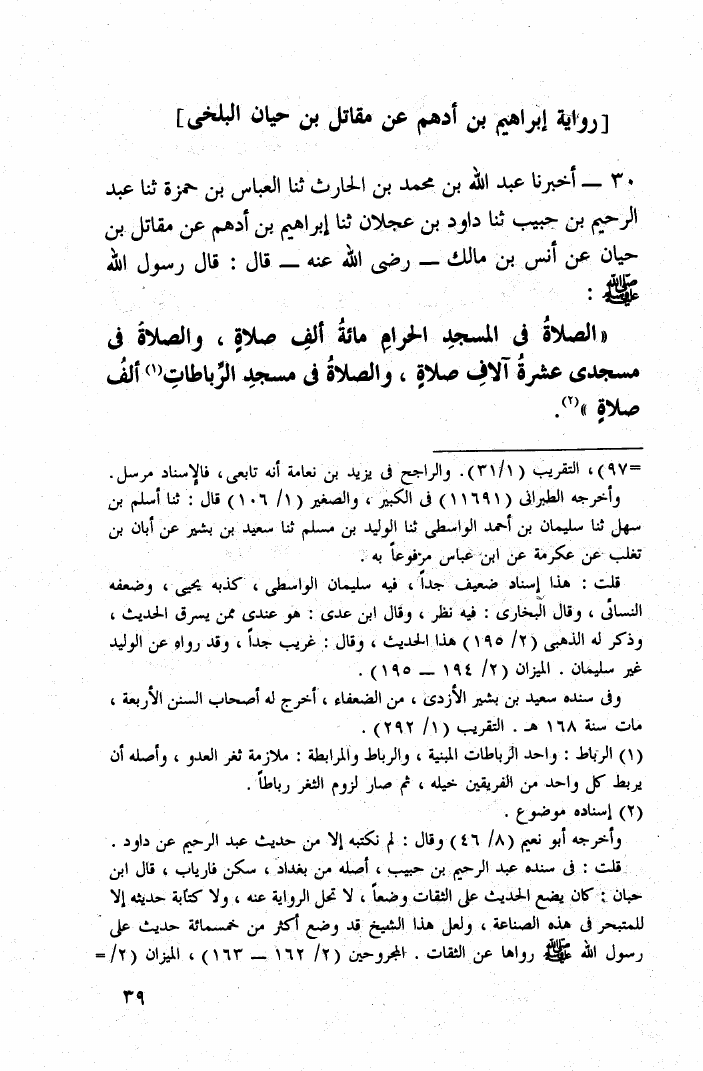 [رواية إبراهيم بن أدهم عن مقاتل بن حيان البلخى]
٣٠ ــ أخبرنا عبد الله بن محمد بن الحارث ثنا العباس بن حمزة ثنا عبد
الرحيم بن حبيب ثنا داود بن عجلان ثنا إبراهيم بن أدهم عن مقاتل بن
حيان عن أنس بن مالك ــ رضى الله عنه ــ قال : قال رسول الله
ﷺ :
«الصلاةُ فى المسجدِ الحرامِ مائةُ ألفِ صلاةٍ ، والصلاةُ فى
مسجدى عشرةُ آلافِ صلاةٍ ، والصلاةُ فى مسجدِ الرِّباطاتِ(١) ألفُ
صلاةٍ »(٢).
=٩٧) ، التقريب (٣١/١). والراجح فى يزيد بن نعامة أنه تابعى، فالإسناد مرسل.
وأخرجه الطبرانى (١١٦٩١) فى الكبير ، والصغير (١/ ١٠٦) قال : ثنا أسلم بن
سهل ثنا سليمان بن أحمد الواسطى ثنا الوليد بن مسلم ثنا سعيد بن بشير عن أبان بن
تغلب عن عكرمة عن ابن عباس مرفوعاً به .
قلت : هذا إسناد ضعيف جداً ، فيه سليمان الواسطى ، كذبه يحيى ، وضعفه
النسائى ، وقال البخارى : فيه نظر ، وقال ابن عدى : هو عندى ممن يسرق الحديث ،
وذكر له الذهبى (٢/ ١٩٥) هذا الحديث ، وقال : غريب جداً ، وقد رواه عن الوليد
غير سليمان . الميزان (٢/ ١٩٤ ــ ١٩٥) .
وفى سنده سعيد بن بشير الأزدى ، من الضعفاء ، أخرج له أصحاب السنن الأربعة ،
مات سنة ١٦٨ هـ . التقريب (١/ ٢٩٢) .
(١) الرباط : واحد الرباطات المبنية ، والرباط والمرابطة : ملازمة ثغر العدو ، وأصله أن
يربط كل واحد من الفريقين خيله ، ثم صار لزوم الثغر رباطاً .
(٢) إسناده موضوع .
وأخرجه أبو نعيم (٨/ ٤٦) وقال : لم نكتبه إلا من حديث عبد الرحيم عن داود .
قلت : فى سنده عبد الرحيم بن حبيب ، أصله من بغداد ، سكن فارياب ، قال ابن
حبان : كان يضع الحديث على الثقات وضعاً ، لا تحل الرواية عنه ، ولا كتابة حديثه إلا
للمتبحر فى هذه الصناعة ، ولعل هذا الشيخ قد وضع أكثر من خمسمائة حديث على
رسول الله ﷺ رواها عن الثقات . المجروحين (٢/ ١٦٢ ــ ١٦٣) ، الميزان (٢/=
٣٩